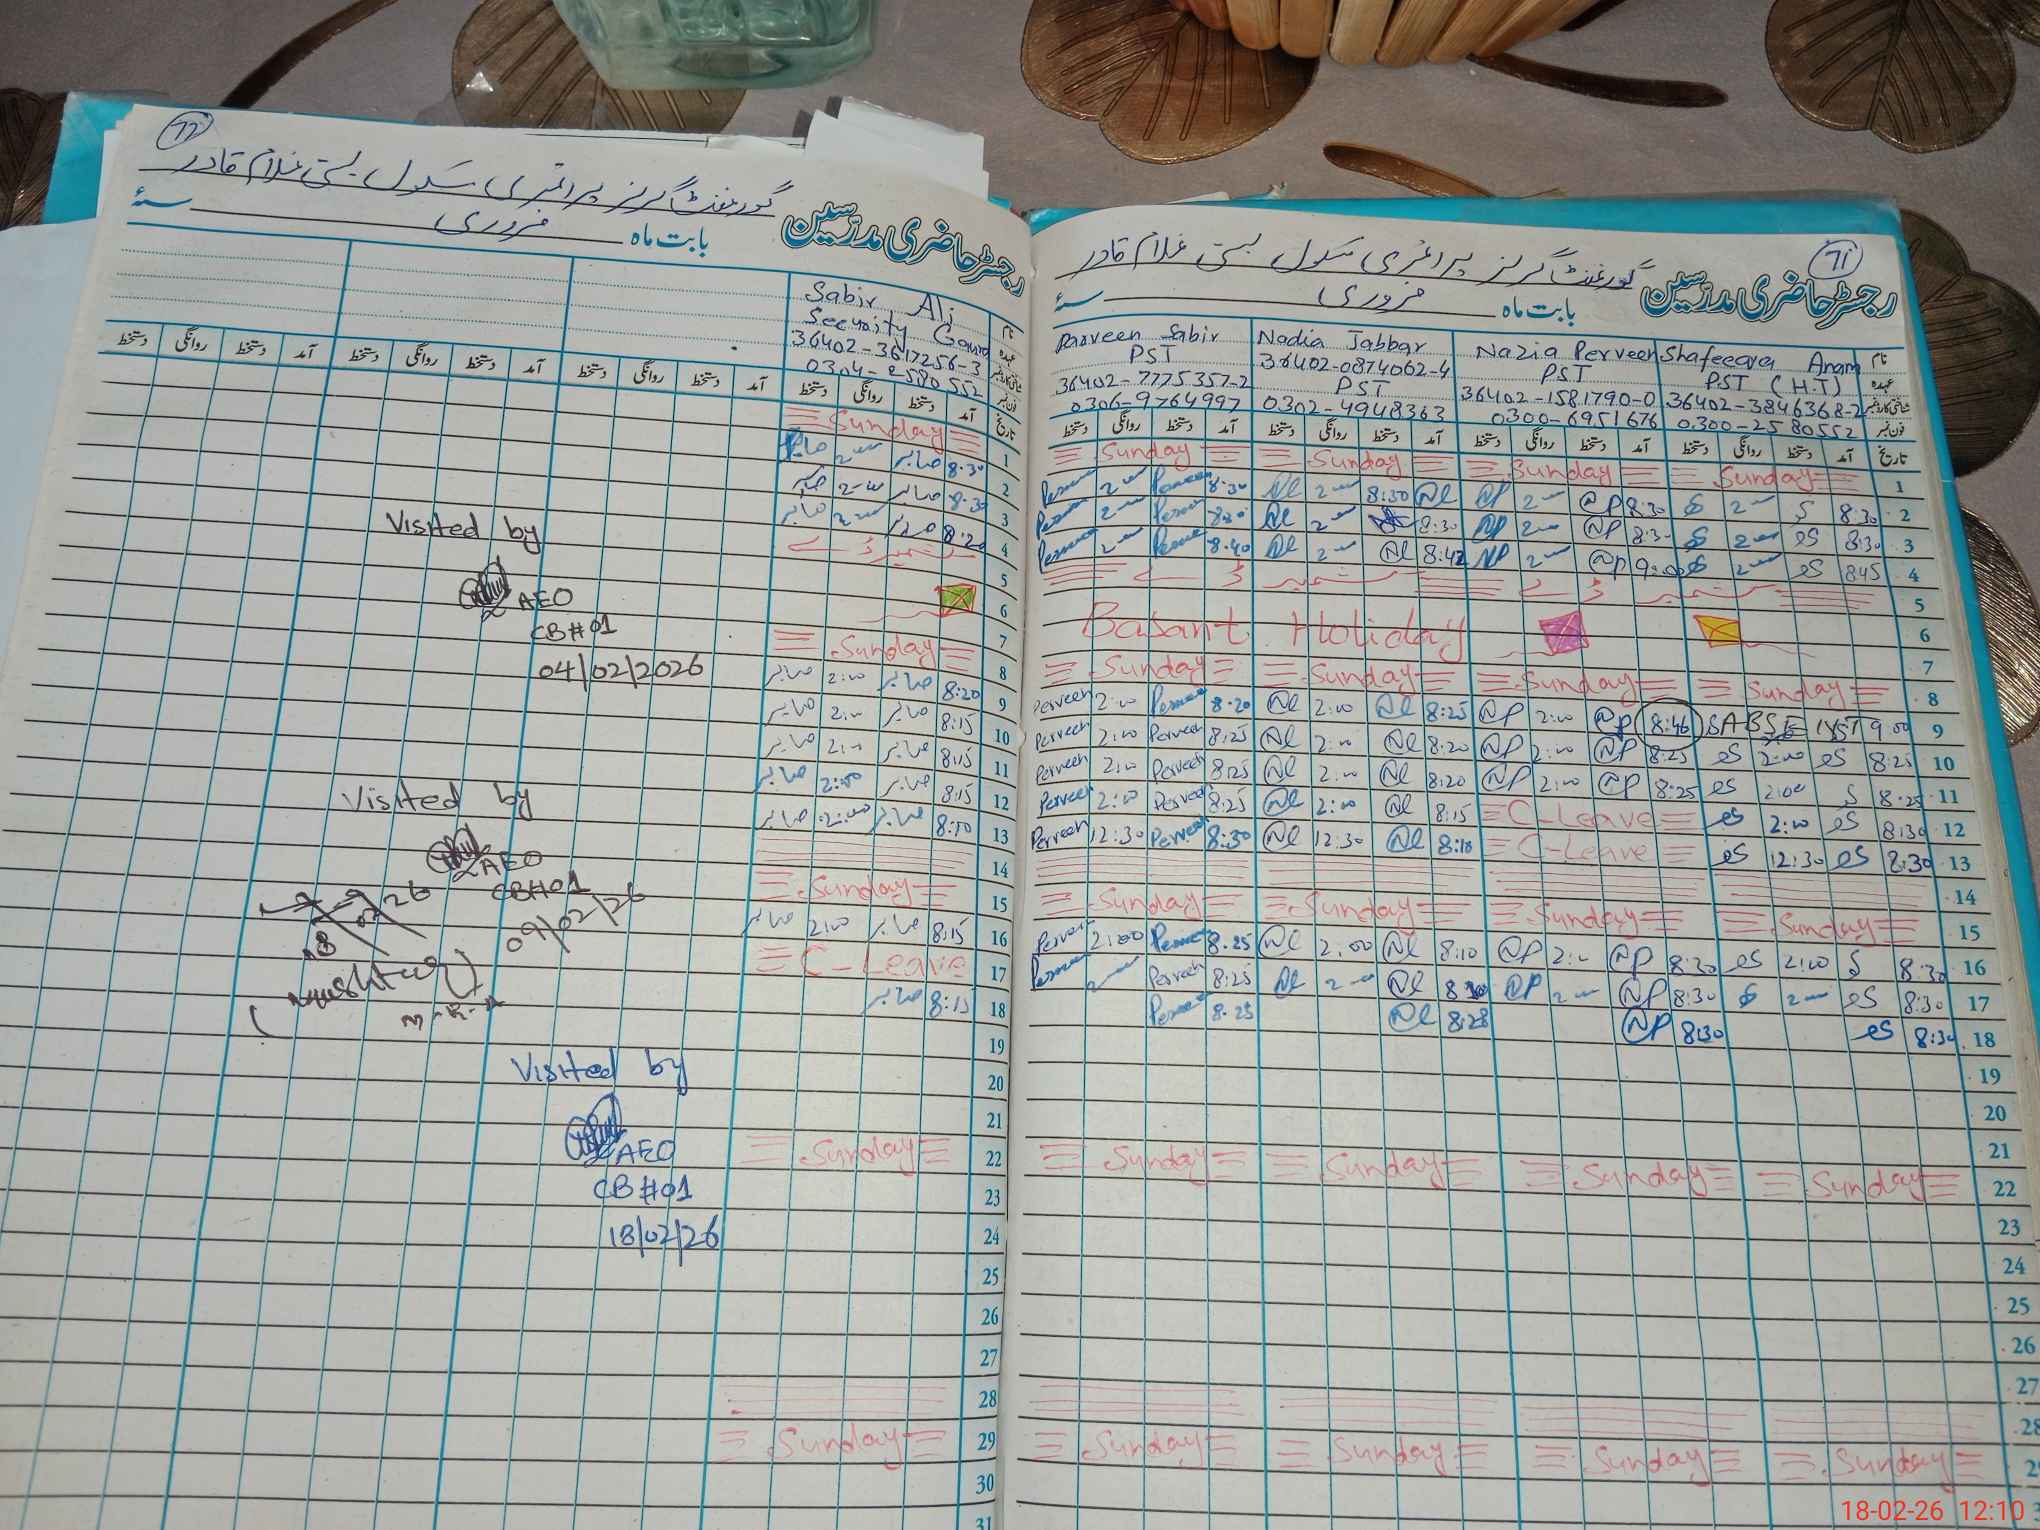 71
رجسٹر حاضری مدرّسین
گورنمنٹ گرلز پرائمری سکول بستی غلام قادر
بابت ماہ فروری سنۂ
نام Shafeeqra Anam Nazia Perveen Nadia Jabbar Parveen Sabir
عہدہ PST (H.T) PST PST PST
شناختی کارڈ نمبر 36402-3846368-2 36402-1581790-0 36402-0874062-4 36402-7775357-2
فون نمبر 0300-2580552 0300-6951676 0302-4948363 0306-9764997
تاریخ آمد دستخط روانگی دستخط آمد دستخط روانگی دستخط آمد دستخط روانگی دستخط آمد دستخط روانگی دستخط
1 Sunday Sunday Sunday Sunday
2 8:30 8:30 NP NP 8:30 Nl Nl 8:30
3 8:30 8:30 NP NP 8:30 Nl
4 8:45 NP NP 8:42 Nl Nl 8:40
5 کشمیر ڈے کشمیر ڈے
6 Basant Holiday
7
8 Sunday Sunday Sunday Sunday
9 9:00 8:46 NP 2:00 NP 8:25 Nl 2:00 Nl 8:20 Perveen 2:00 Perveen
10 8:25 2:00 8:25 NP 2:00 NP 8:20 Nl 2:00 Nl 8:25 Perveen 2:00 Perveen
11 8:25 2:00 8:25 NP 2:00 NP 8:20 Nl 2:00 Nl 8:25 Perveen 2:00 Perveen
12 8:30 2:00 C-Leave 8:15 Nl 2:00 Nl 8:25 Perveen 2:00 Perveen
13 8:30 12:30 C-Leave 8:10 Nl 12:30 Nl 8:30 Perveen 12:30 Perveen
14
15 Sunday Sunday Sunday Sunday
16 8:30 2:00 8:30 NP 2:00 NP 8:10 Nl 2:00 Nl 8:25 2:00
17 8:30 8:30 NP NP Nl Nl 8:25 Perveen
18 8:30 8:30 NP 8:28 Nl 8:25
19
20
21
22 Sunday Sunday Sunday Sunday
23
24
25
26
27
28
29 Sunday Sunday Sunday Sunday
72
رجسٹر حاضری مدرّسین
گورنمنٹ گرلز پرائمری سکول بستی غلام قادر
بابت ماہ فروری سنۂ
نام Sabir Ali
عہدہ Security Gaurd
شناختی کارڈ نمبر 36402-3617256-3
فون نمبر 0304-2580552
تاریخ آمد دستخط روانگی دستخط آمد دستخط روانگی دستخط آمد دستخط روانگی دستخط آمد دستخط روانگی دستخط
1 Sunday
2 8:30 صابر صابر
3 8:30 صابر صابر
4 8:20 صابر صابر
5 کشمیر ڈے
6
7
8 Sunday
9 8:20 صابر 2:00 صابر
10 8:15 صابر 2:00 صابر
11 8:15 صابر 2:00 صابر
12 8:15 صابر 2:00 صابر
13 8:10 صابر 2:00 صابر
14
15 Sunday
16 8:15 صابر 2:00 صابر
17 C-Leave
18 8:15 صابر
19
20
21
22 Sunday
23
24
25
26
27
28
29 Sunday
30
31
Visited by
AEO
CB#01
04/02/2026
Visited by
AEO
CB#01
09/02/26
18 02 26
(Mushtaq)
M-E-A
Visited by
AEO
CB#01
18/02/26
18-02-26 12:10